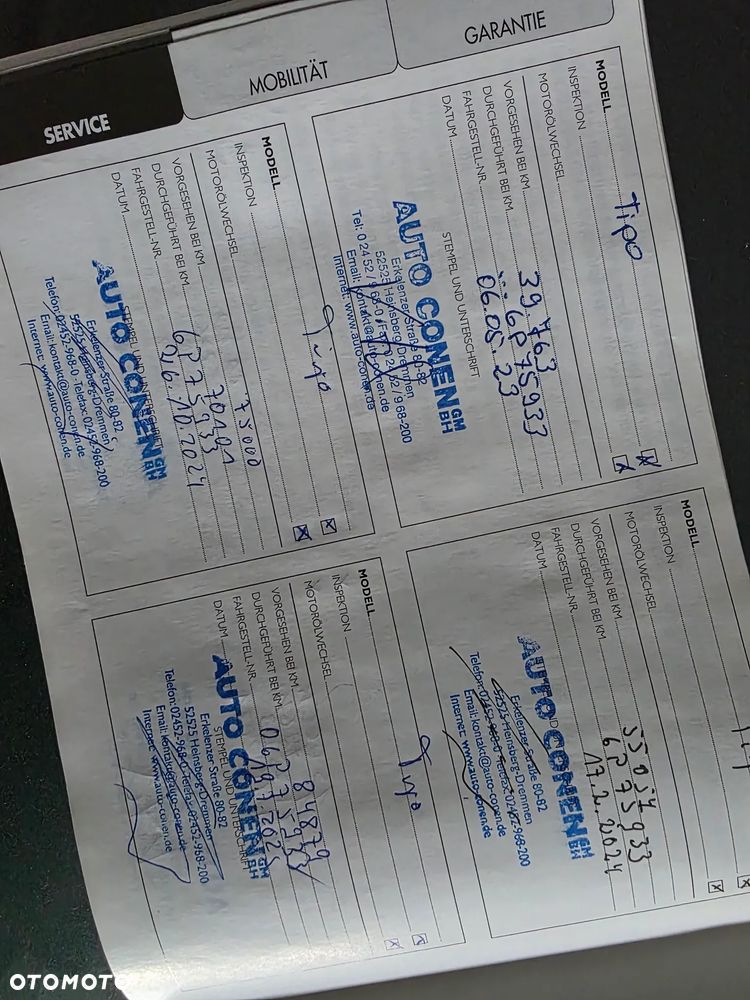 SERVICE
MOBILITÄT
GARANTIE
MODELL Tipo
INSPEKTION
MOTORÖLWECHSEL
VORGESEHEN BEI KM
DURCHGEFÜHRT BEI KM 39763
FAHRGESTELL-NR. 6P75933
DATUM 06.05.23
STEMPEL UND UNTERSCHRIFT
AUTO CONEN GM BH
Erkelenzer Straße 80-82
52525 Heinsberg-Dremmen
Tel: 0 24 52 / 9 68-0 24 52 / 9 68-200
Email: kontakt@auto-conen.de
Internet: www.auto-conen.de
MODELL
INSPEKTION
MOTORÖLWECHSEL
VORGESEHEN BEI KM
DURCHGEFÜHRT BEI KM
FAHRGESTELL-NR. 6P75933
DATUM 17.2.2024
AUTO CONEN GM BH
Erkelenzer Straße 80-82
52525 Heinsberg-Dremmen
Telefon: 02452-968-0 Telefax: 02452-968-200
Email: kontakt@auto-conen.de
Internet: www.auto-conen.de
MODELL Tipo
INSPEKTION
MOTORÖLWECHSEL
VORGESEHEN BEI KM 75000
DURCHGEFÜHRT BEI KM 70101
FAHRGESTELL-NR. 6P75933
DATUM 16.10.2024
STEMPEL UND UNTERSCHRIFT
AUTO CONEN GM BH
Erkelenzer Straße 80-82
52525 Heinsberg-Dremmen
Telefon: 02452-968-0 Telefax: 02452-968-200
Email: kontakt@auto-conen.de
Internet: www.auto-conen.de
MODELL Tipo
INSPEKTION
MOTORÖLWECHSEL
VORGESEHEN BEI KM
DURCHGEFÜHRT BEI KM 84879
FAHRGESTELL-NR. 06P75933
DATUM
STEMPEL UND UNTERSCHRIFT
AUTO CONEN GM BH
Erkelenzer Straße 80-82
52525 Heinsberg-Dremmen
Telefon: 02452-968-0 Telefax: 02452-968-200
Email: kontakt@auto-conen.de
Internet: www.auto-conen.de
OTOMOTO